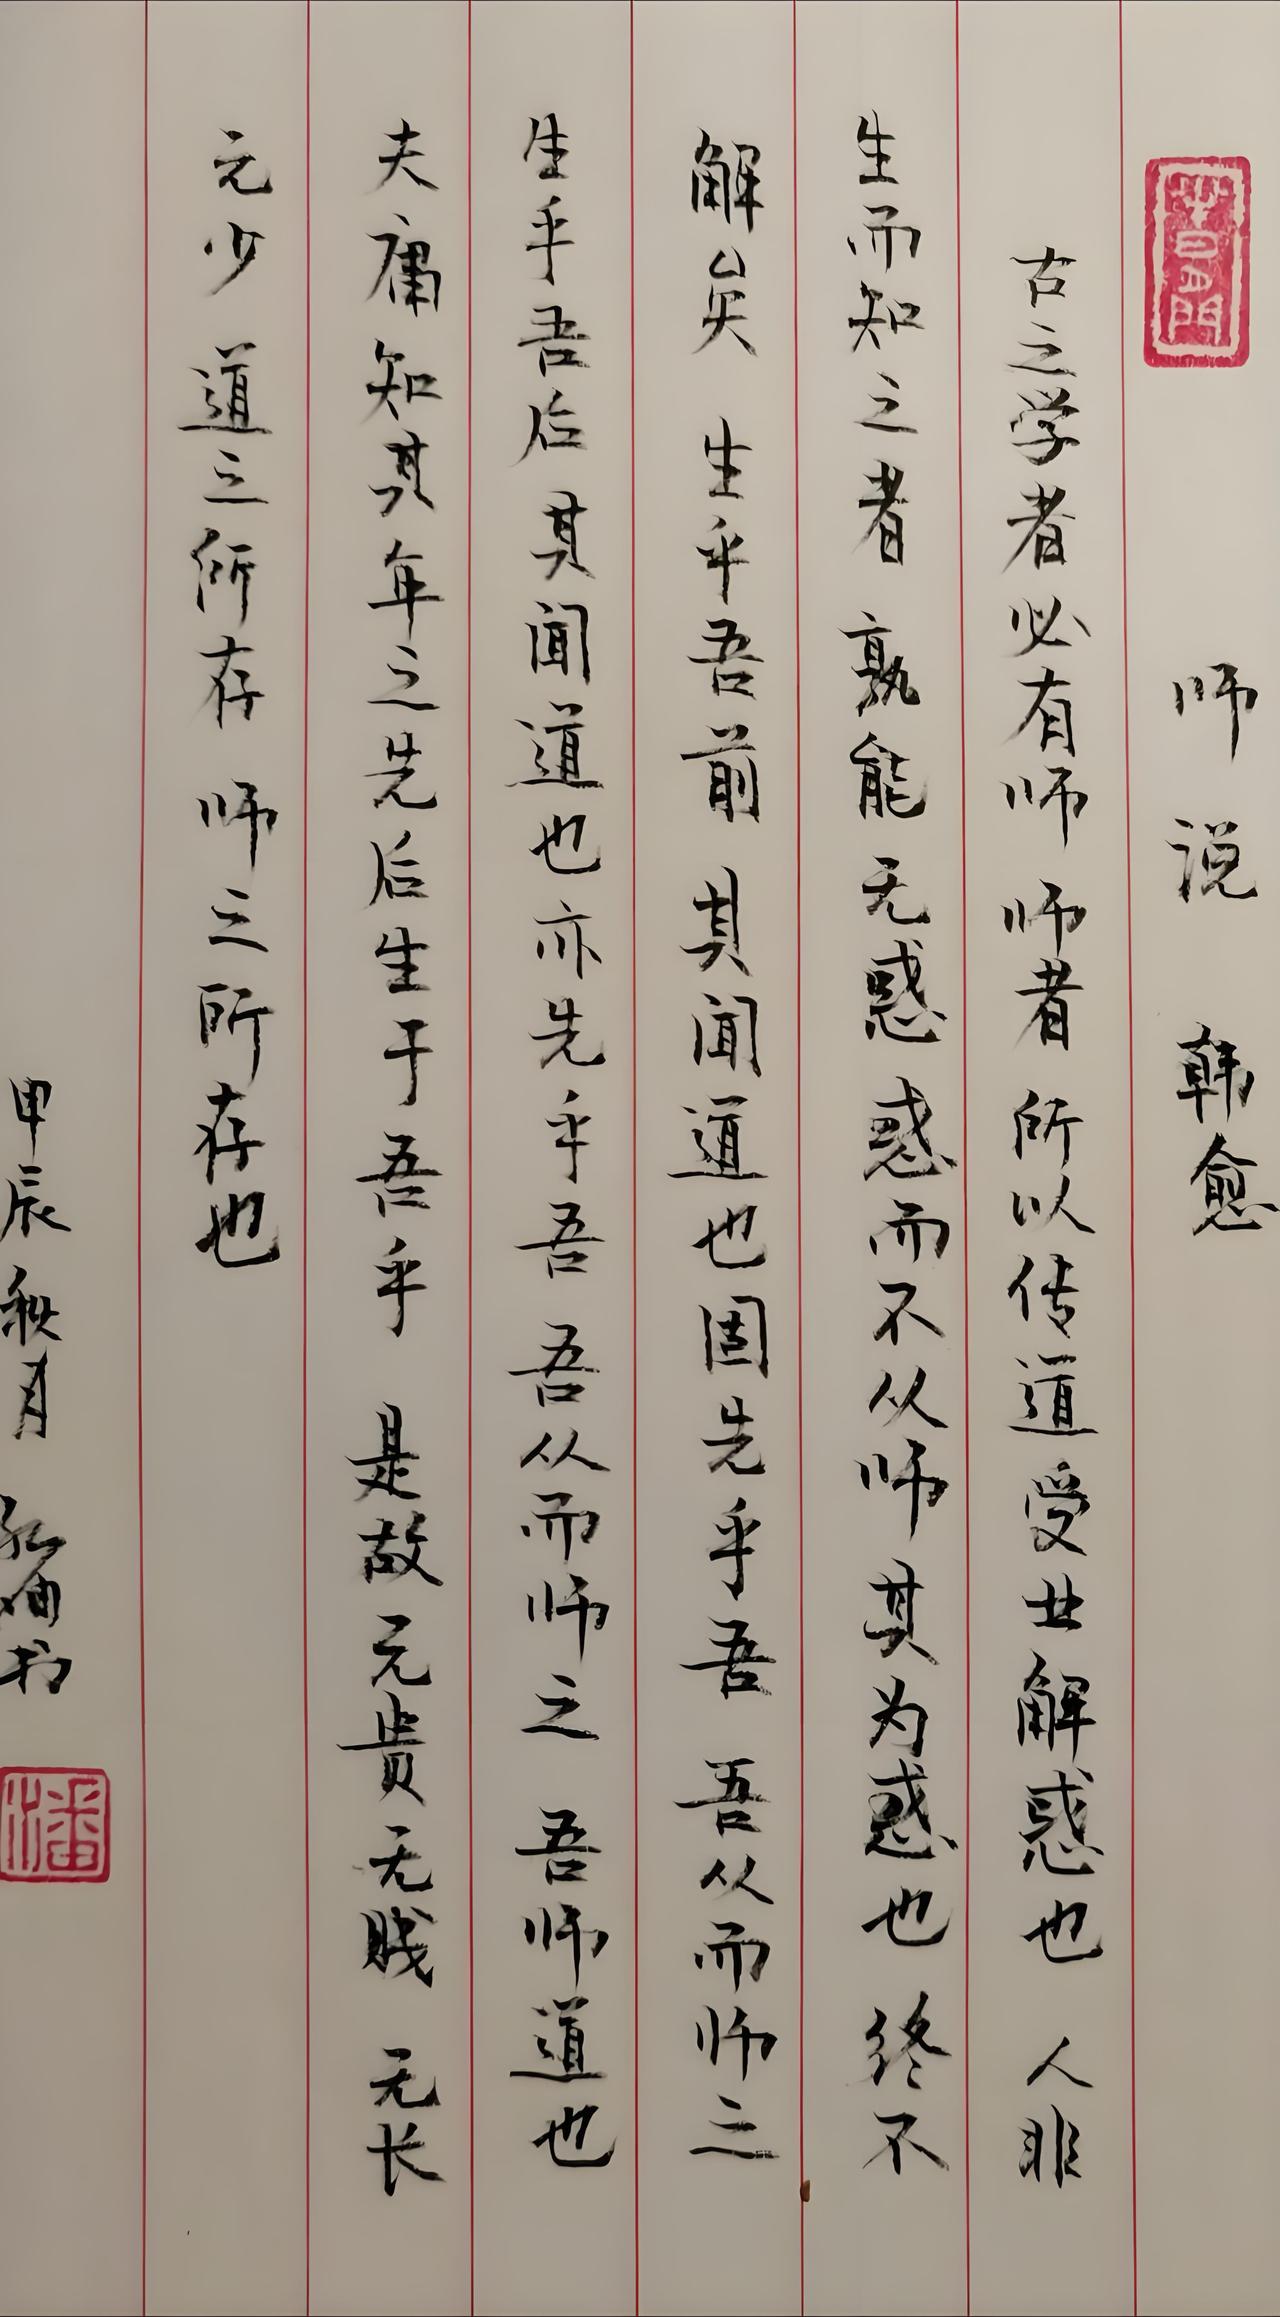 师说 韩愈
古之学者必有师 师者 所以传道受业解惑也 人非
生而知之者 孰能无惑 惑而不从师 其为惑也 终不
解矣 生乎吾前 其闻道也固先乎吾 吾从而师之
生乎吾后 其闻道也亦先乎吾 吾从而师之 吾师道也
夫庸知其年之先后生于吾乎 是故无贵无贱 无长
无少 道之所存 师之所存也
甲辰秋月 书
潘